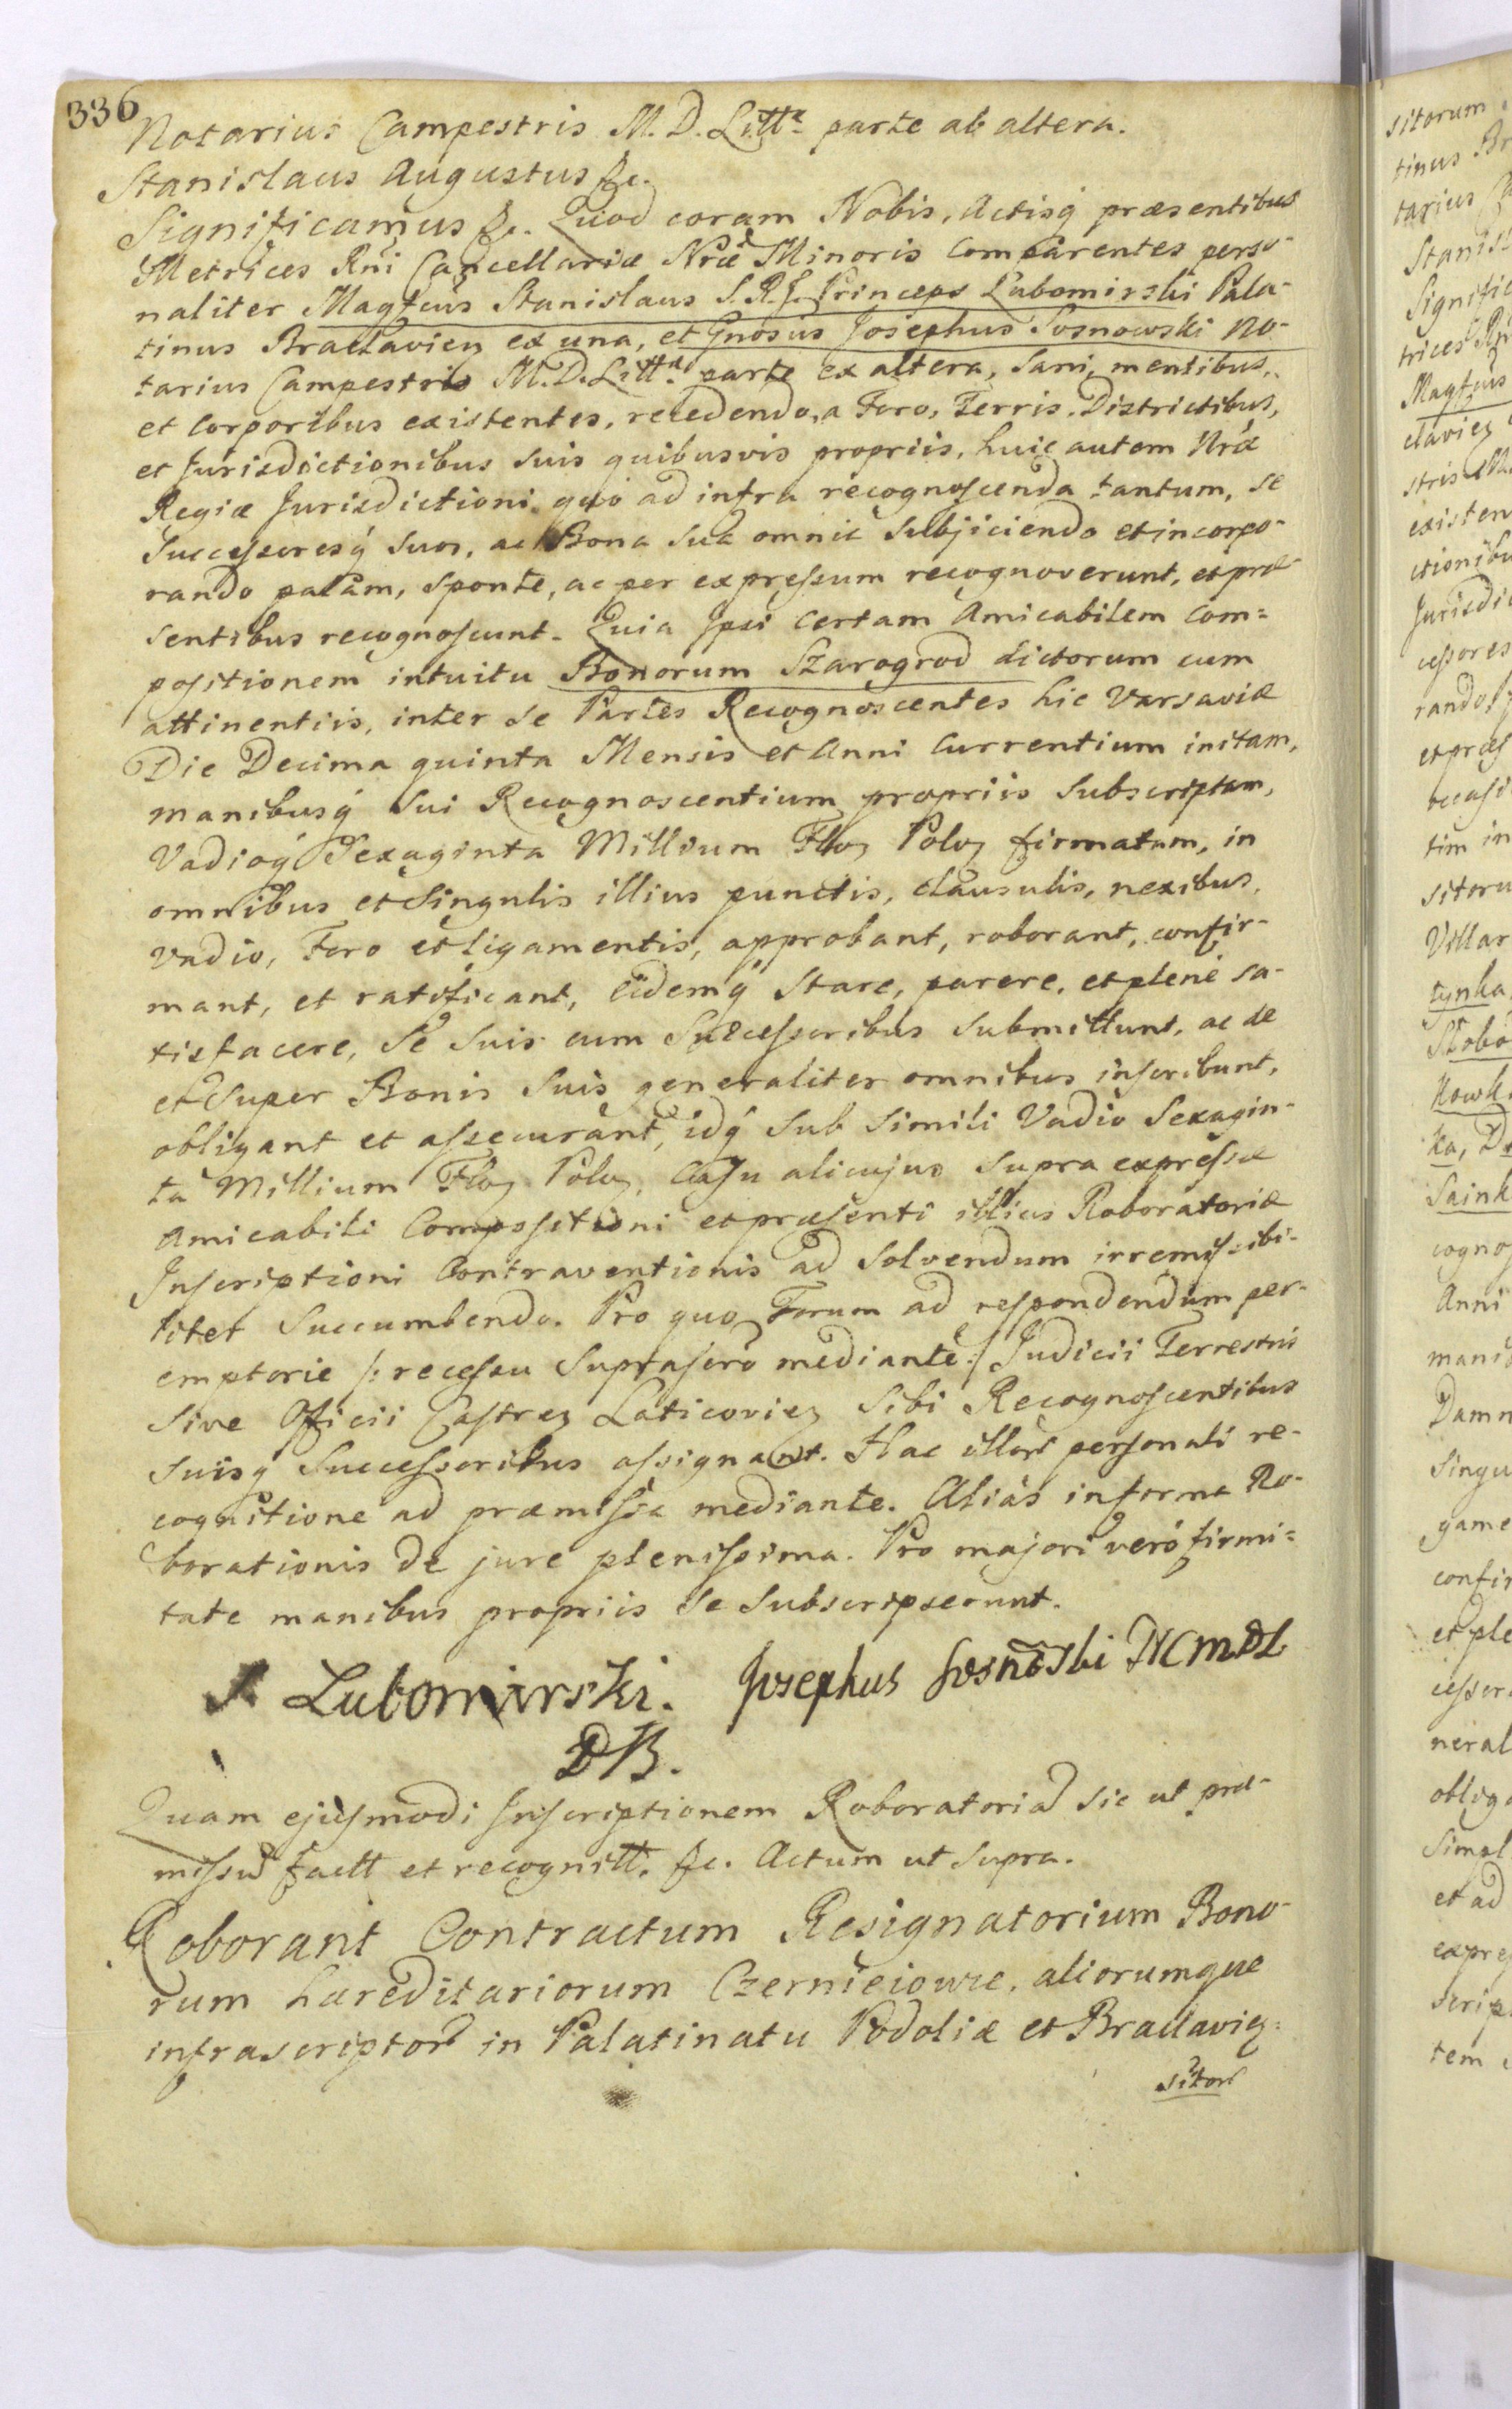 336
Notarius Campestris M. D. Littæ parte ab altera.
Stanislaus Augustus &c.
Significamus &c. Quod coram Nobis, Actisq́ præsentibus
Metrices Rni Cancellariæ Nræ Minoris Comparentes perso-
naliter Magfcus Stanislaus S. R. I. Princeps Lubomirski Pala-
tinus Braclavieñ ex una, et Gnosus Josephus Sosnowski No-
tarius Campestris M. D. Littæ parte ex altera, Sani, mentibus,
et Corporibus existentes, recedendo, a Foro, Terris, Districtibus,
et Jurisdictionibus suis quibusvis propriis, huic autem Nræ
Regiæ Jurisdictioni quó ad infra recognoscenda tantum, se
Successoresq́ Suos, ac Bona Sua omnia Subjiciendo et incorpo-
rando palàm, Sponte, ac per expressum recognoverunt, et præ-
sentibus recognoscunt. Quia Ipsi Certam Amicabilem Com=
positionem intuitu Bonorum Szarogrod dictorum cum
attinentiis, inter se Partes Recognoscentes hic Varsaviæ
Die Decima quinta Mensis et Anni Currentium initam,
manibusq́ Sui Recognoscentium propriis Subscriptam,
Vadioq́ Sexaginta Millium Flloŋ Poloŋ firmatam, in
omnibus et Singulis illius punctis, clausulis, nexibus,
vadio, Foro et ligamentis, approbant, roborant, confir-
mant, et ratificant, Eidemq́ Stare, parere, et plené sa-
tisfacere, Se Suis cum Successoribus Submittunt, ac de
et Super Bonis Suis generaliter omnibus inscribunt,
obligant et assecurant, idq́ Sub Simili Vadio Sexagin-
ta Millium Floŋ Poloŋ, Casu alicujus Supra expressæ
Amicabili Compositioni et præsenti illius Roboratoriæ
Inscriptioni Contraventionis ad Solvendum irremissibi-
liter Succumbendo. Pro quo Forum ad respondendum per-
emptorie /: recessu Suprascro mediante :/ Judicii Terrestris
Sive Officii Castreŋ Laticovieŋ Sibi Recognoscentibus
Suisq́ Successoribus assignant. Hac illor personali re-
cognitione ad præmissa mediante. Aliàs in forma Ro-
borationis de jure plenissima. Pro majori veró firmi=
tate manibus propriis Se Subscripserunt.
S Lubomirski. Josephus Sosnowski NCMDL
DB.
Quam ejusmodi Inscriptionem Roboratoria Sic ut præ-
missu factt et recognitt. &c. Actum ut Supra.
Roborant Contractum Resignatorium Bono-
rum hæreditariorum Czernieiowce, aliorumque
infrascriptor in Palatinatu Podoliæ et Braclavieŋ:
sitor
sitorum
tinus Br
tarius Ca
Stanisl
Signific
trices Rn
Magfcus
claviey
stris M
existen
ctionibu
Jurisdic
cessores
rando, p
et præs
occasi
tim in
sitoru
Villar
tynka
Słobo
kowk
ka, D
Saink
cogno
Anni
manib
Damn
Singu
game
confir
et ple
cessor
neral
obliga
Simil
et ad
expre
Scrip
tem